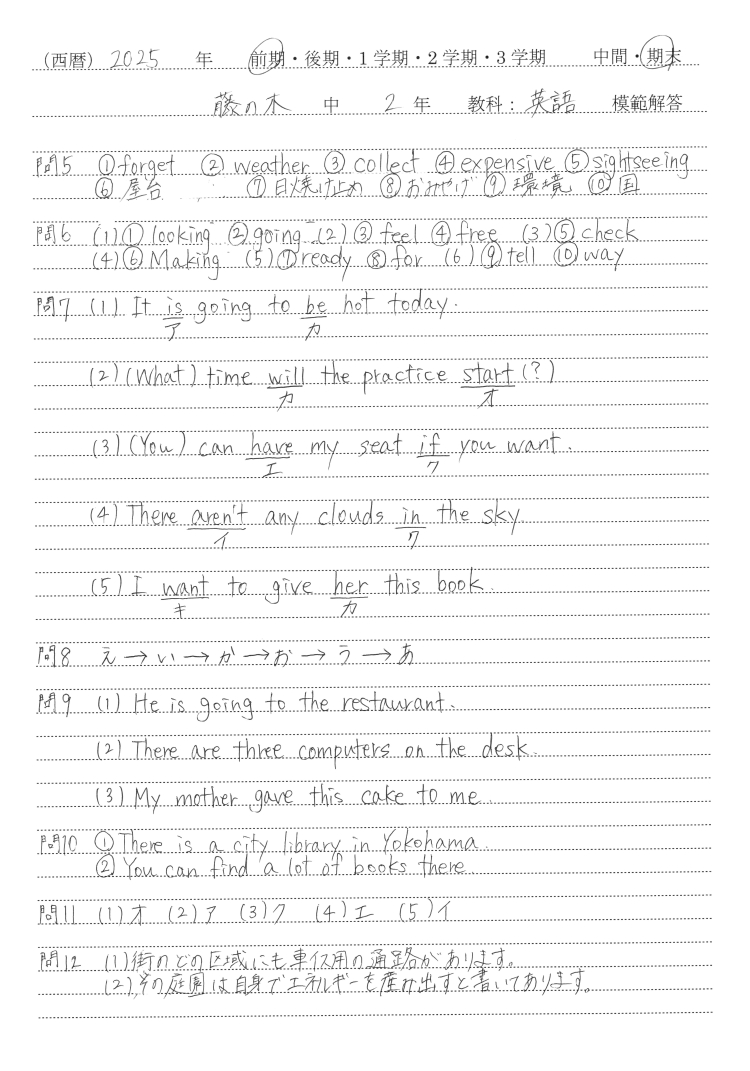 (西暦) 2025 年 前期・後期・1学期・2学期・3学期 中間・期末
藤の木 中 2 年 教科: 英語 模範解答
問5 ①forget ② weather ③ collect ④ expensive ⑤ sightseeing
⑥ 屋台 ⑦ 日焼け止め ⑧ おみやげ ⑨ 環境 ⑩ 国
問6 (1)① looking ②going (2) ③ feel ④ free (3) ⑤ check
(4)⑥ Making (5) ⑦ ready ⑧ for (6) ⑨ tell ⑩ way
問7 (1) It is going to be hot today.
ア カ
(2) (What) time will the practice start (?)
カ オ
(3) (You) can have my seat if you want.
エ ウ
(4) There aren't any clouds in the sky.
イ ウ
(5) I want to give her this book.
キ カ
問8 え→い→か→お→う→あ
問9 (1) He is going to the restaurant.
(2) There are three computers on the desk.
(3) My mother gave this cake to me
問10 ① There is a city library in Yokohama.
② You can find a lot of books there.
問11 (1) オ (2) ア (3) ク (4) エ (5) イ
問12 (1)街のどの区域にも車イス用の通路があります。
(2)その庭園は自身でエネルギーを産み出すと書いてあります。